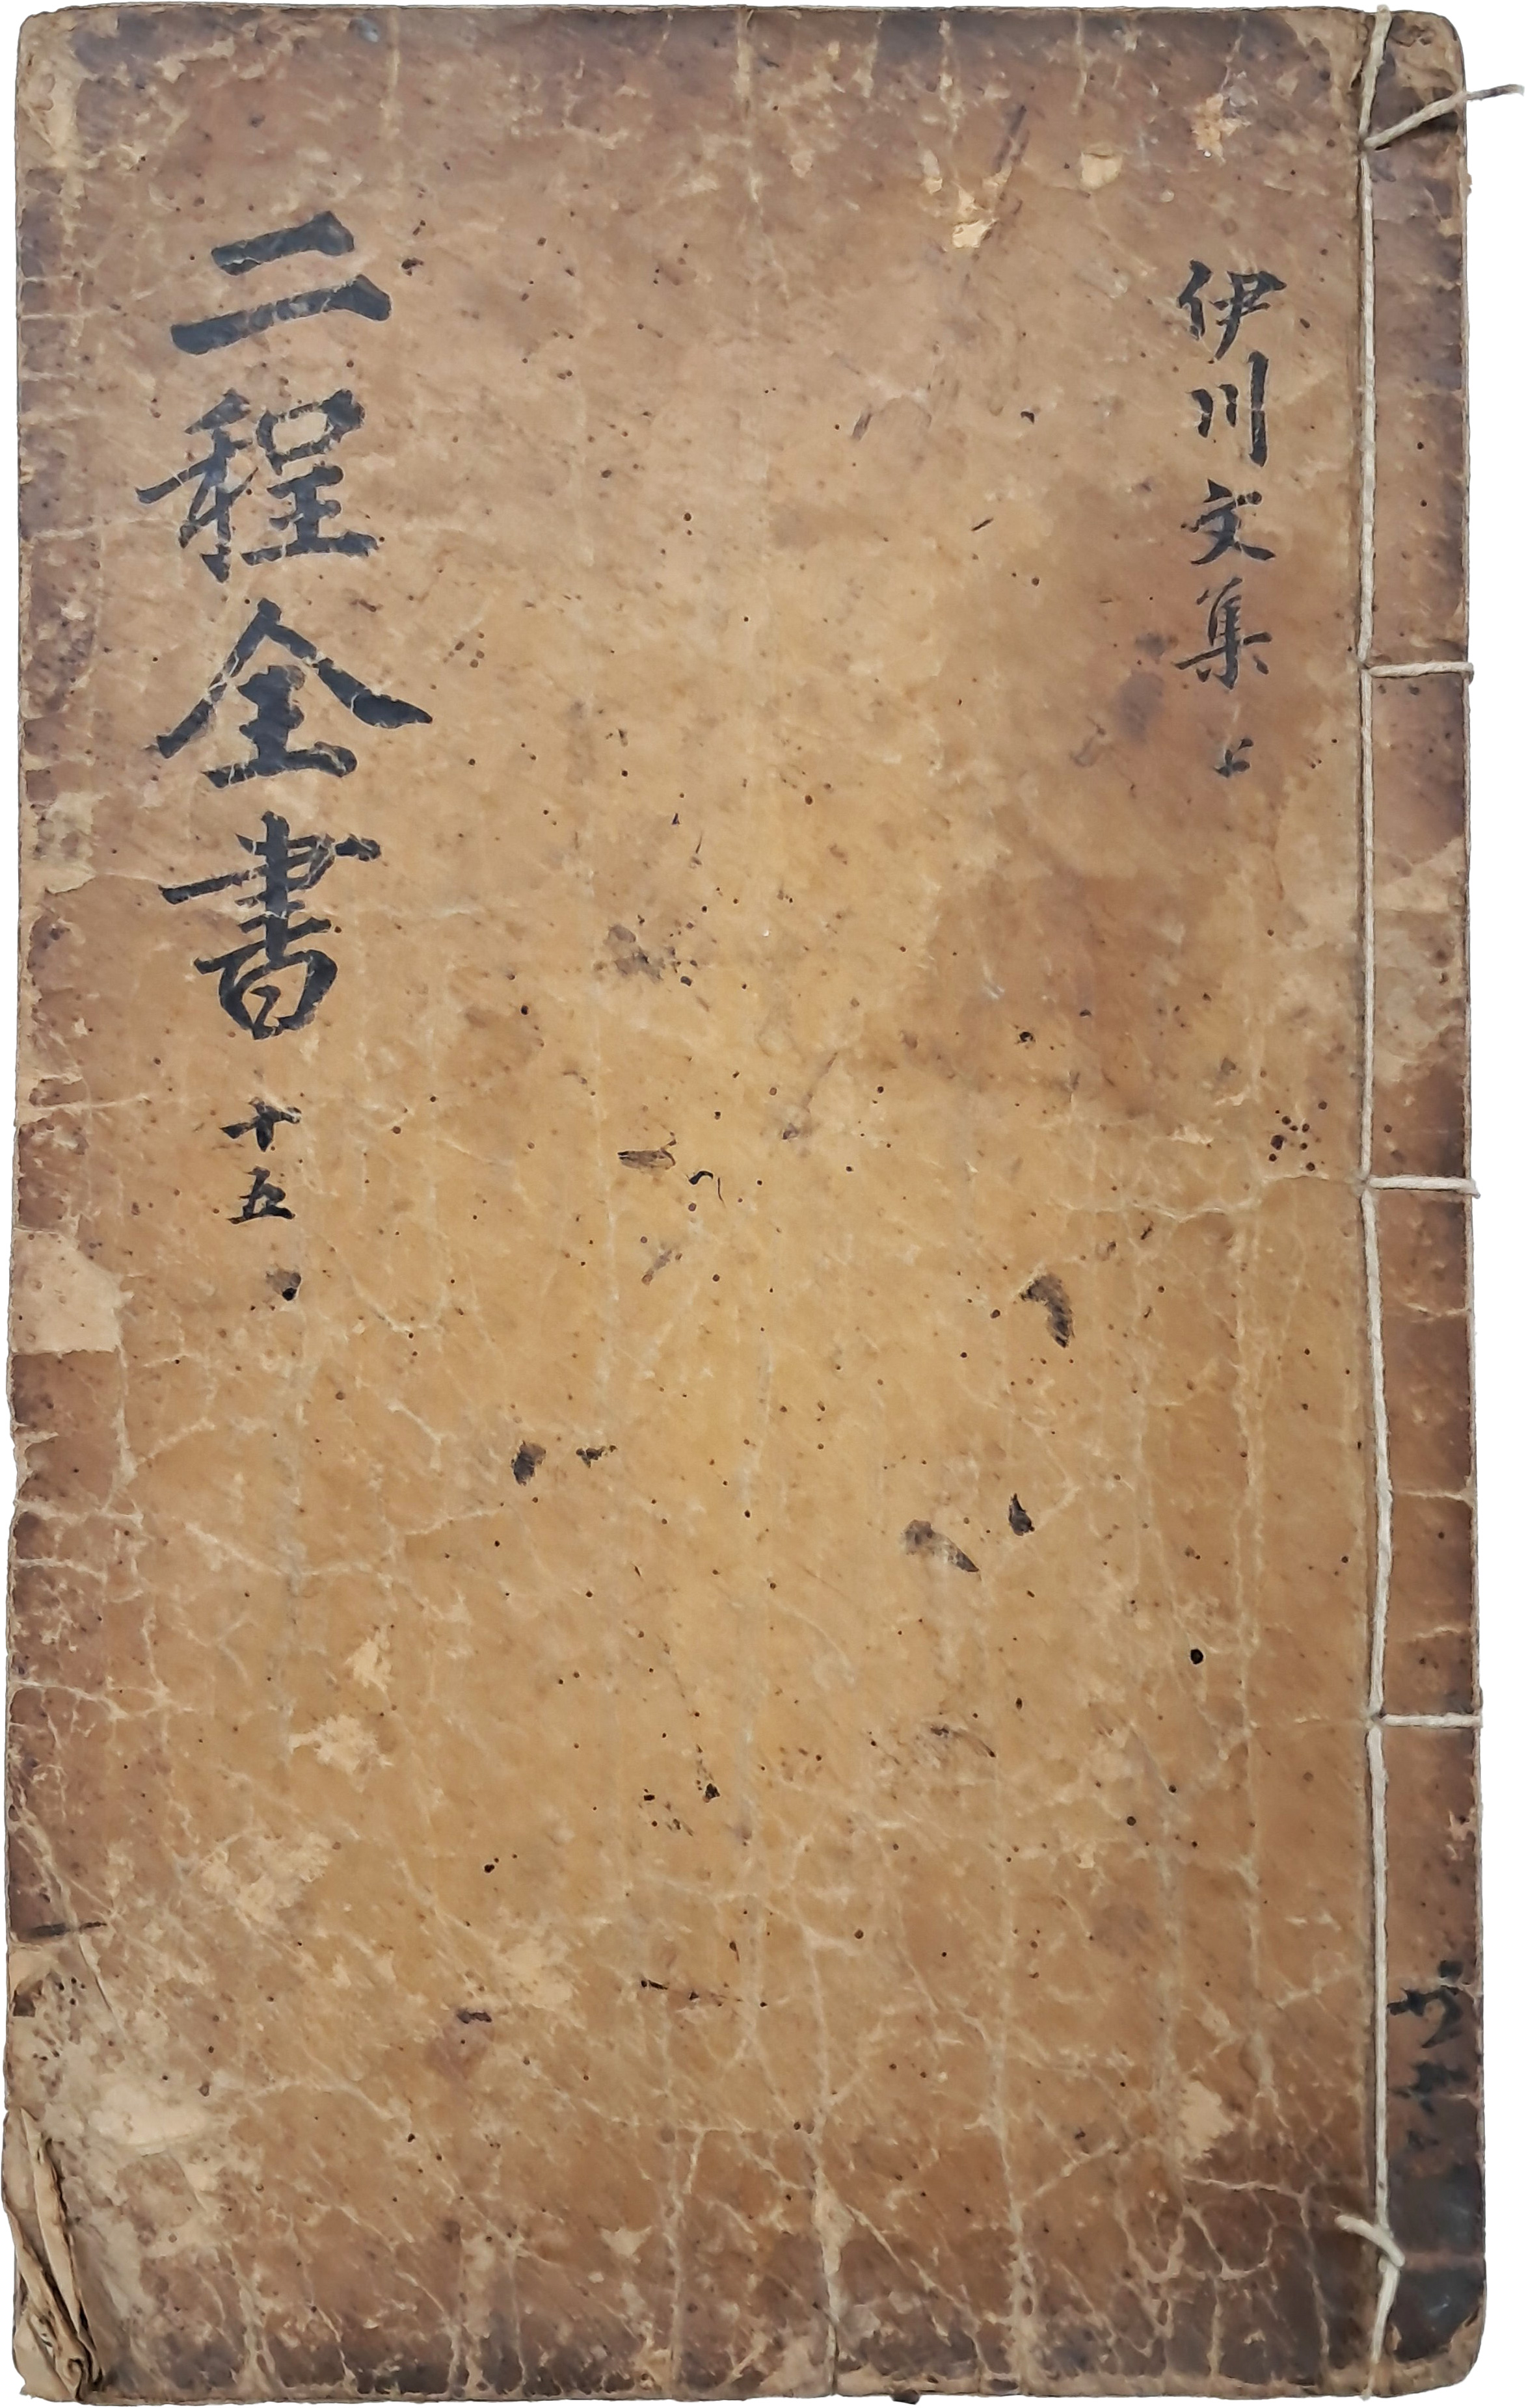 伊川文集 上
二程全書 十五